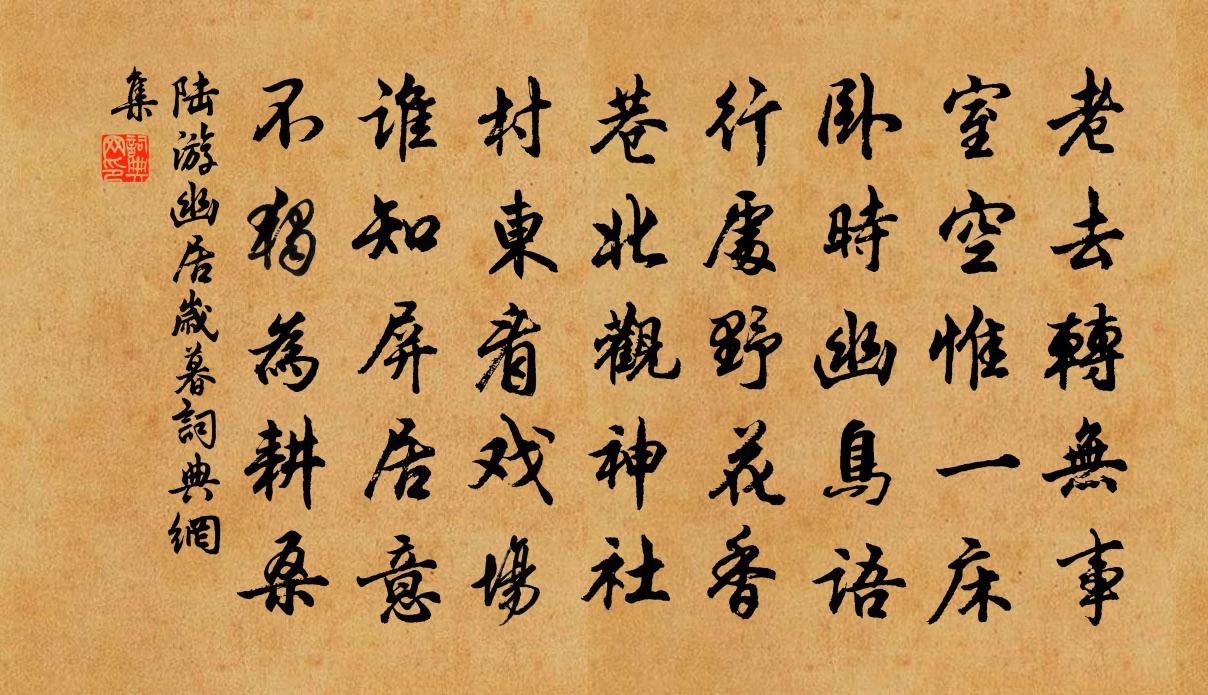 老去轉無事
室空惟一床
卧時幽鳥語
行處野花香
巷北觀神社
村東看戏場
誰知屏居意
不獨為耕桑
陸游幽居歲暮詞典網
集
詞典
网印